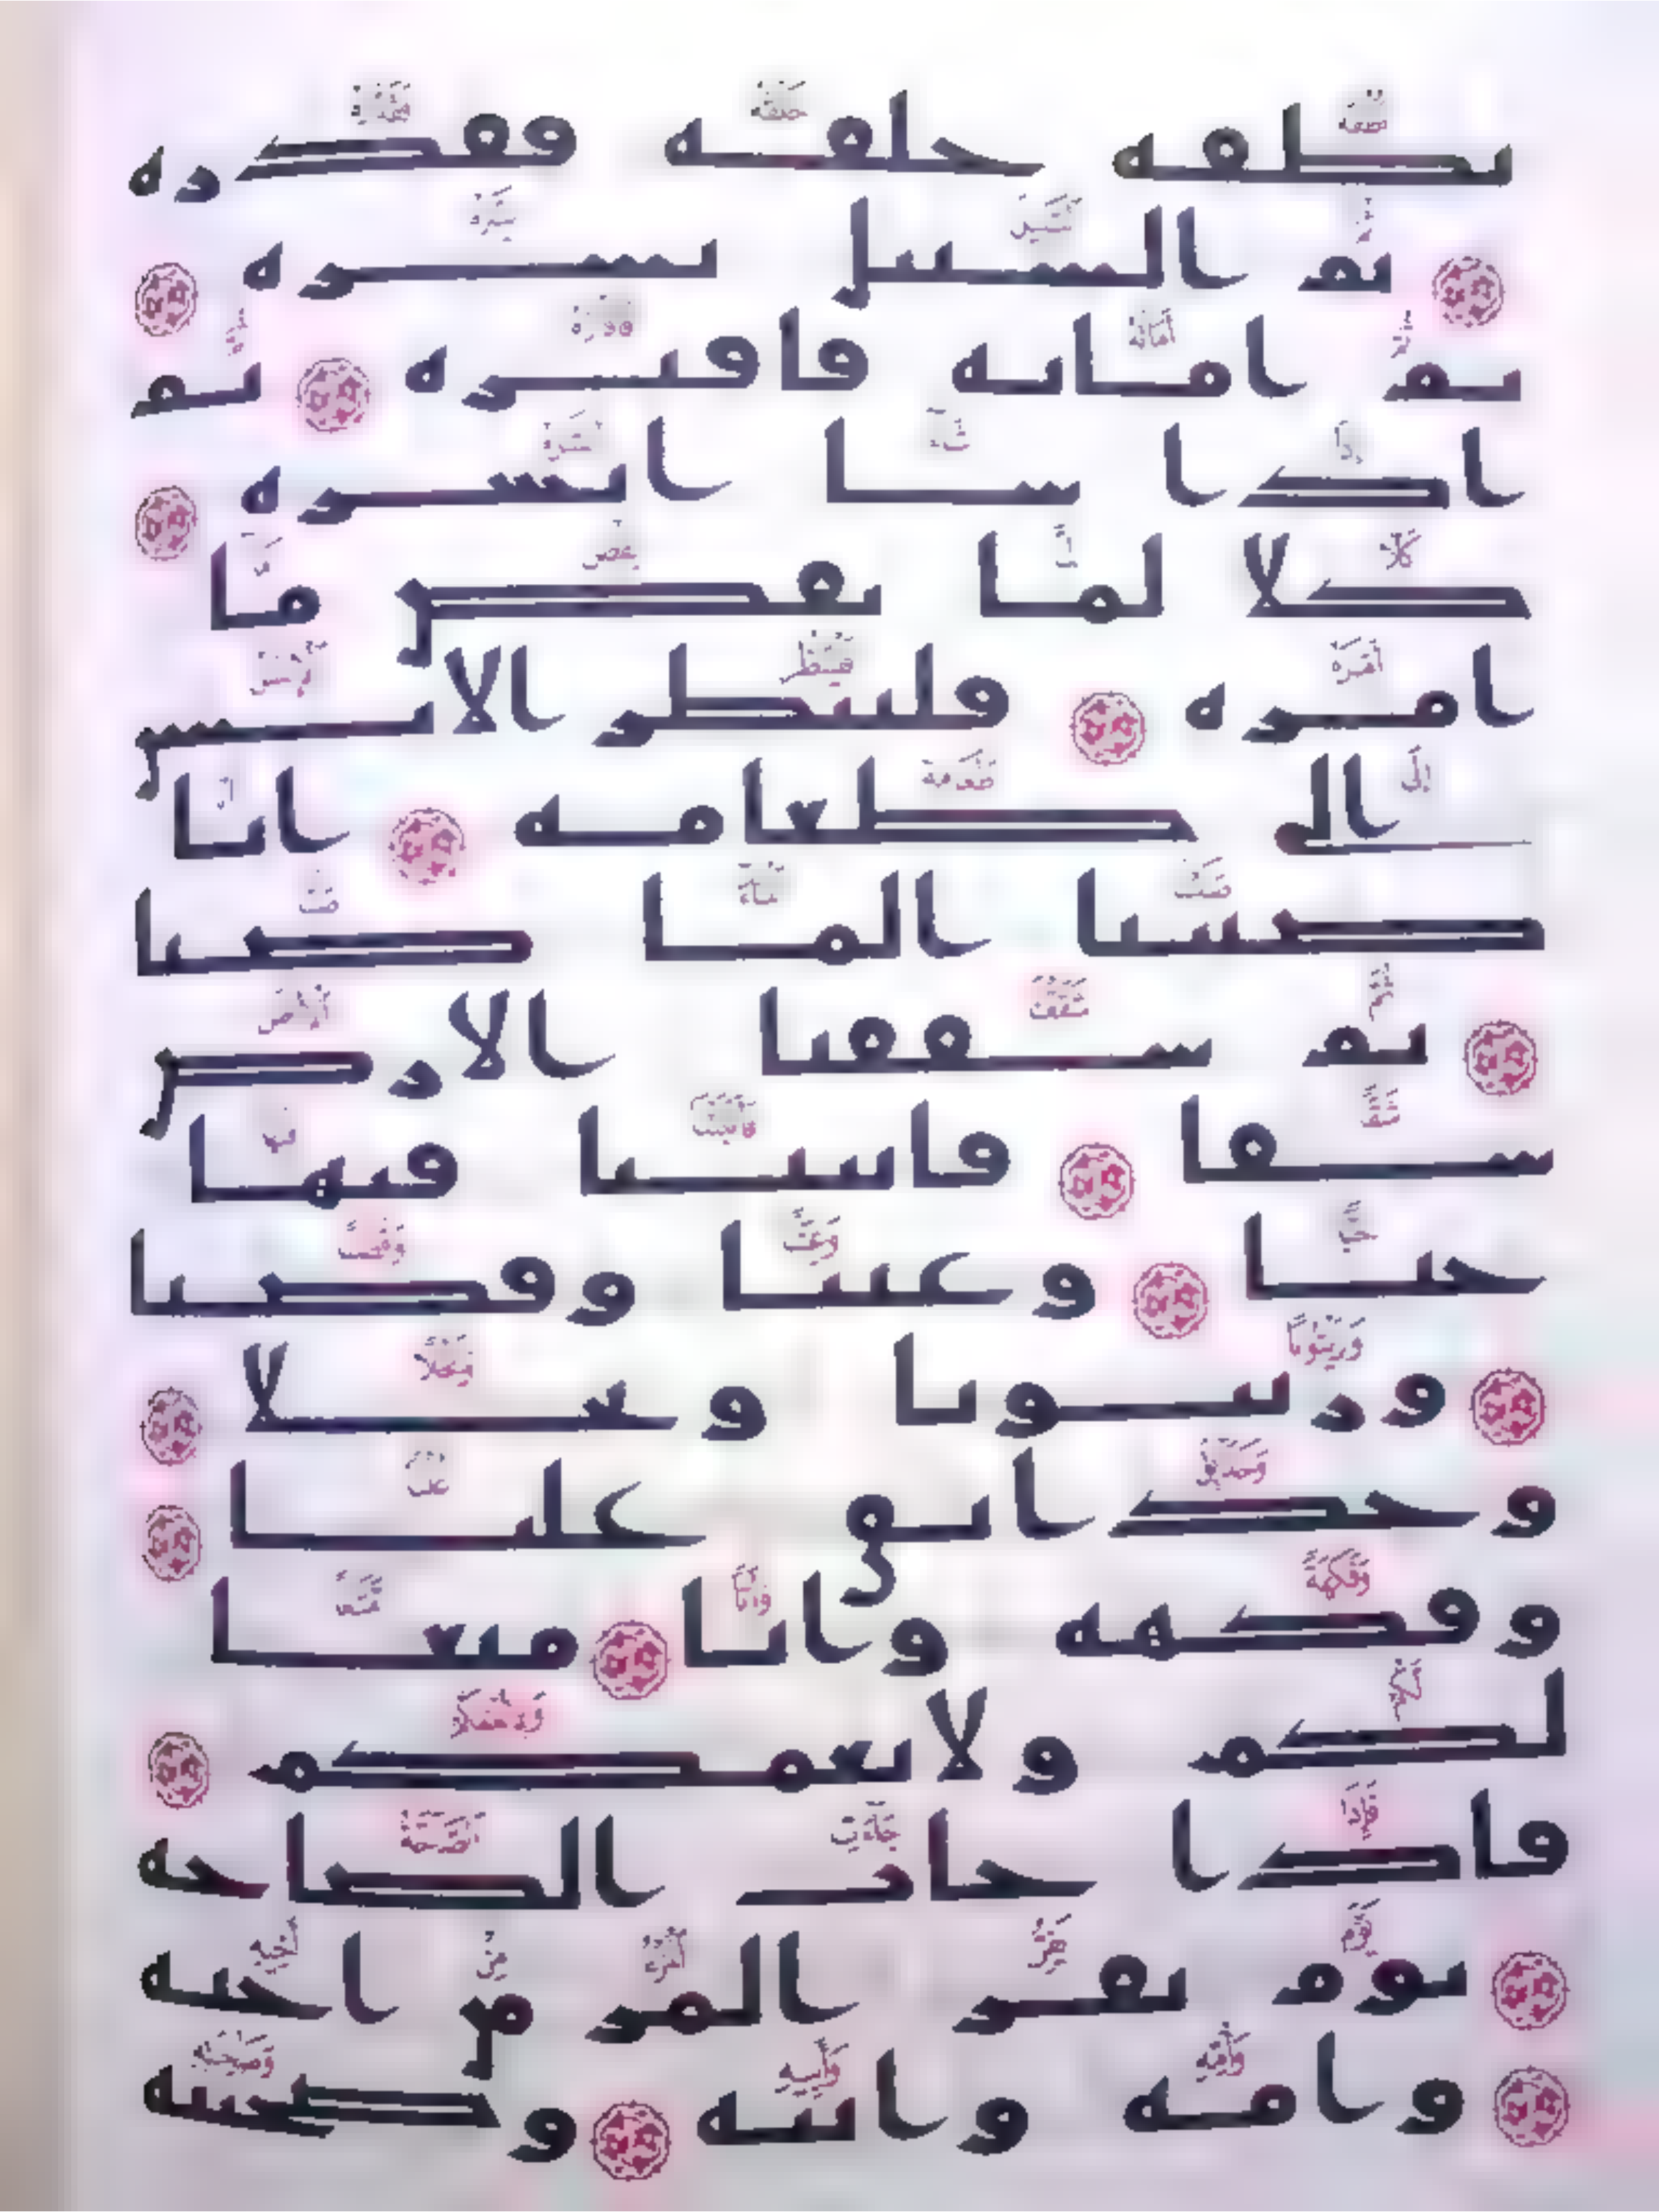 نطفة خلقه فقدره
ثم السبيل يسره
ثم اماته فاقبره ثم
اذا شا انشره
كلا لما يقض ما
امره فلينظر الانسن
الى طعامه انا
صببنا الما صبا
ثم شققنا الارض
شقا فانبتنا فيها
حبا وعنبا وقضبا
وزيتونا ونخلا
وحدايق غلبا
وفكهة وابا متعا
لكم ولانعمكم
فاذا جات الصاخة
يوم يفر المر من اخيه
وامه وابيه وصحبته